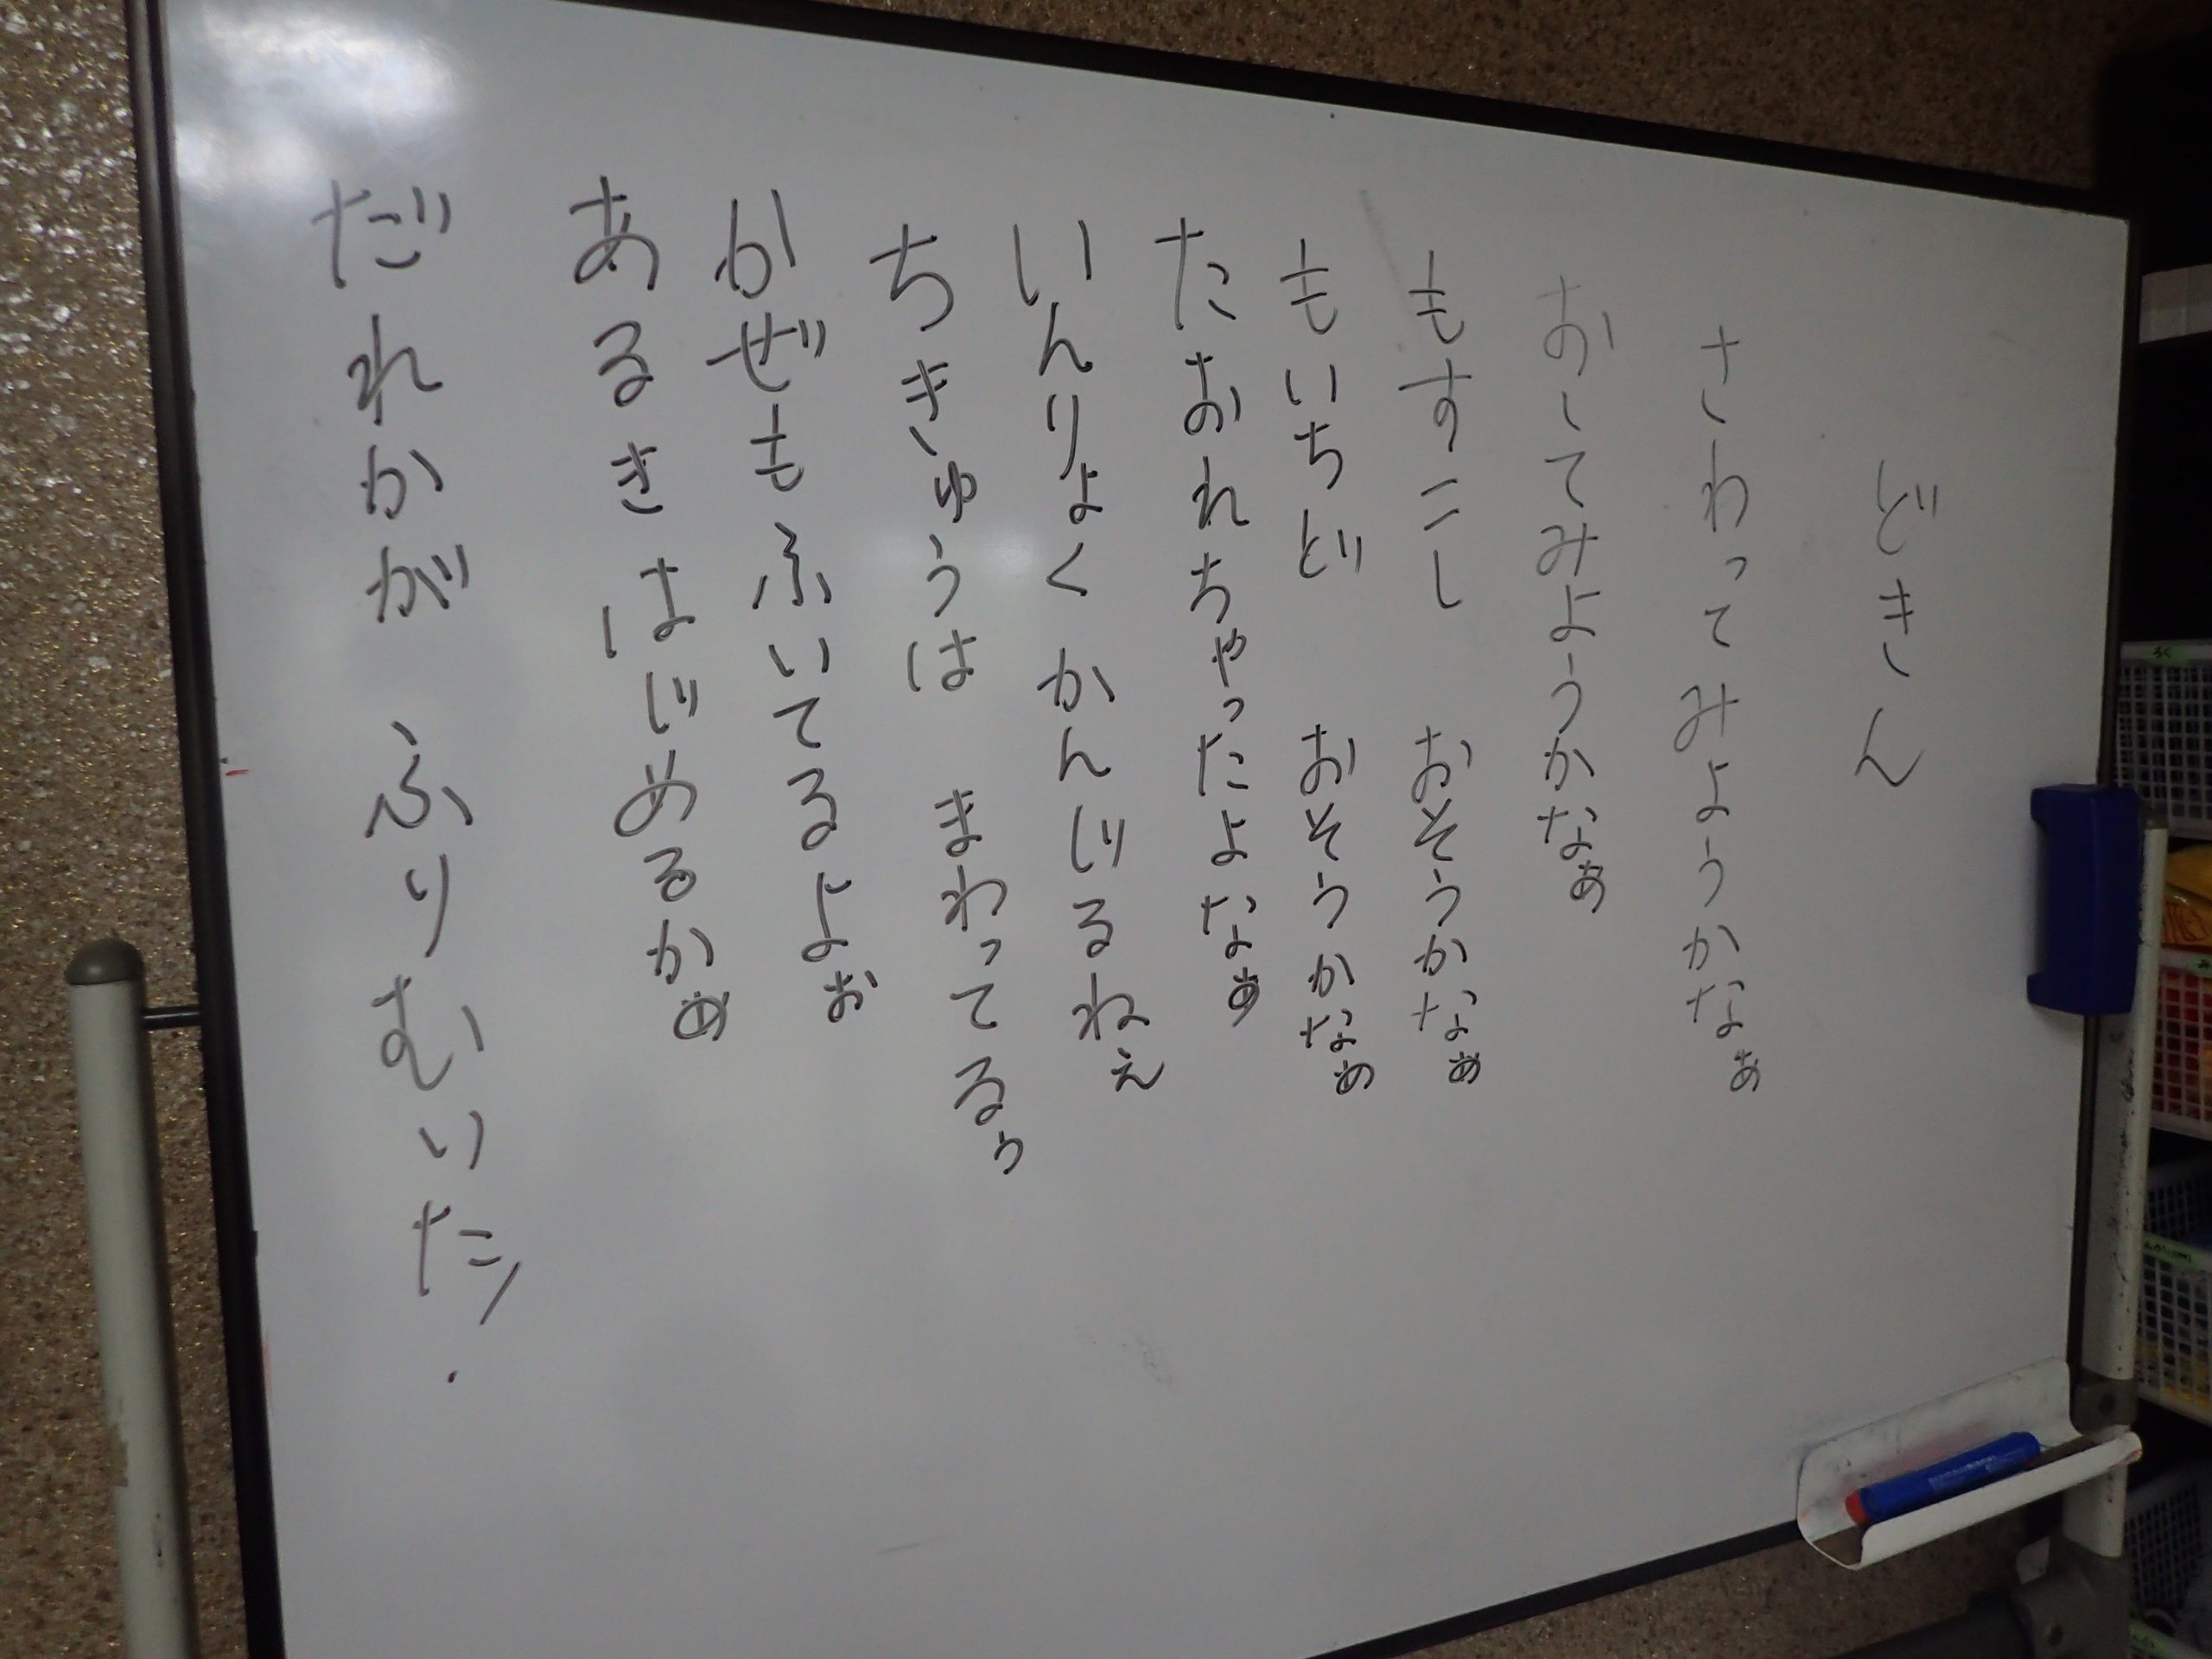 どきん
さわってみようかなぁ
おしてみようかなぁ
もすこし　おそうかなぁ
もいちど　おそうかなぁ
たおれちゃったよなぁ
いんりょくかんじるねぇ
ちきゅうは　まわってるぅ
かぜもふいてるよぉ
あるきはじめるかぁ
だれかが　ふりむいた!